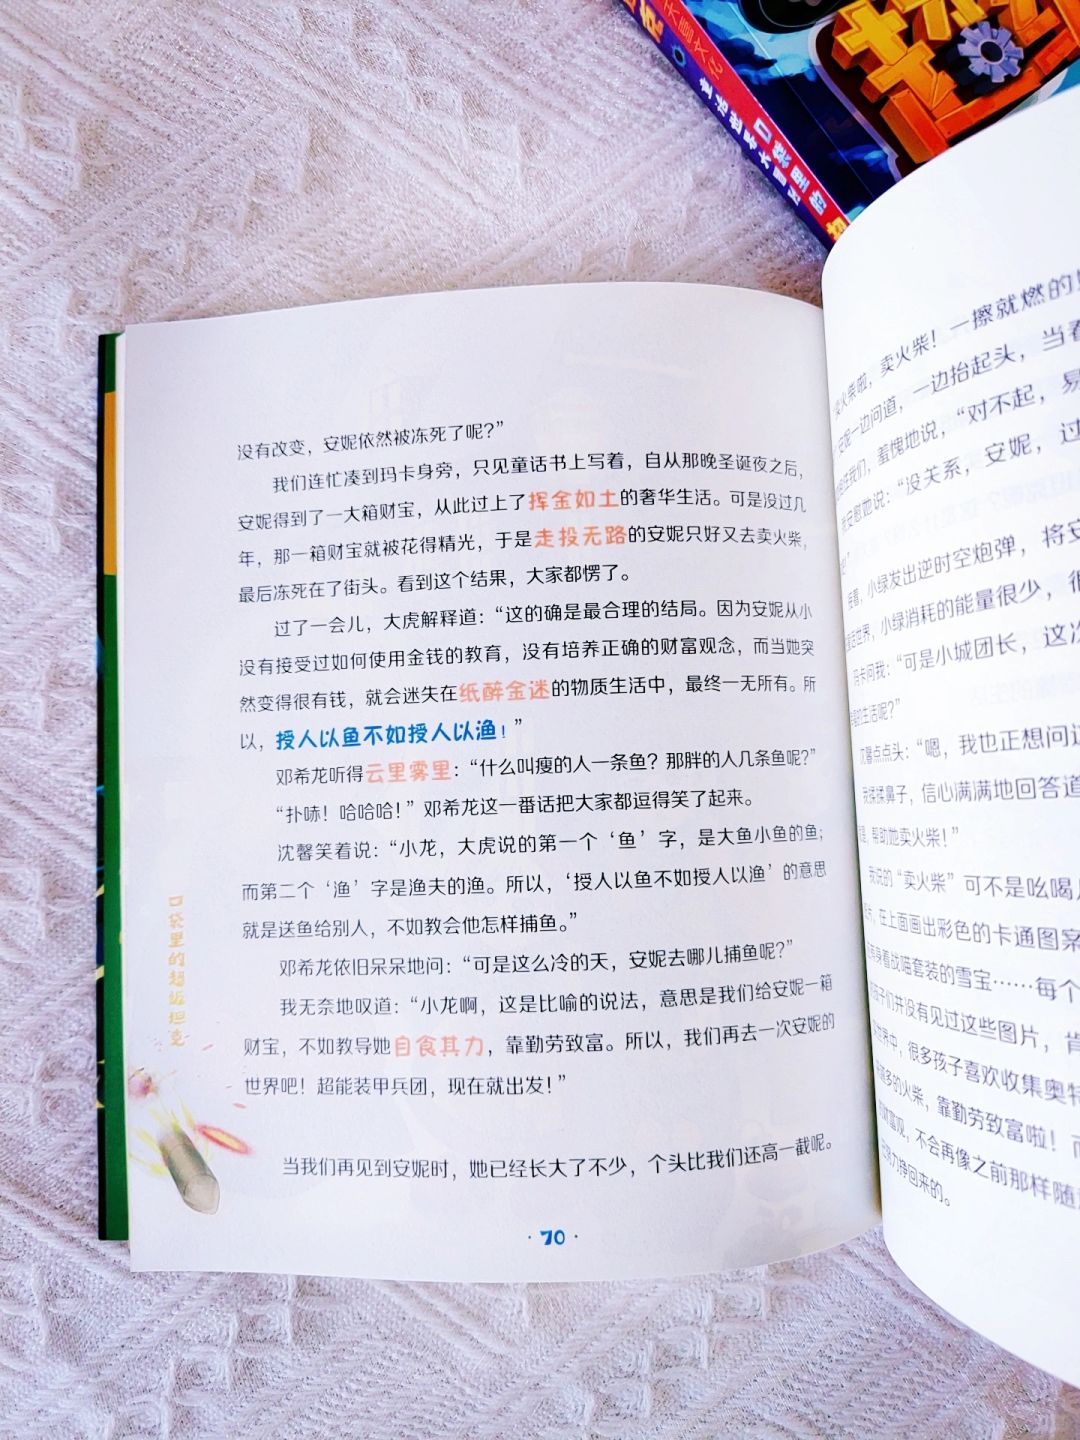 天哲文化
童话世界大冒险
口袋里的
没有改变，安妮依然被冻死了呢？”
我们连忙凑到玛卡身旁，只见童话书上写着，自从那晚圣诞夜之后，
安妮得到了一大箱财宝，从此过上了挥金如土的奢华生活。可是没过几
年，那一箱财宝就被花得精光，于是走投无路的安妮只好又去卖火柴，
最后冻死在了街头。看到这个结果，大家都愣了。
过了一会儿，大虎解释道：“这的确是最合理的结局。因为安妮从小
没有接受过如何使用金钱的教育，没有培养正确的财富观念，而当她突
然变得很有钱，就会迷失在纸醉金迷的物质生活中，最终一无所有。所
以，授人以鱼不如授人以渔！”
邓希龙听得云里雾里：“什么叫瘦的人一条鱼？那胖的人几条鱼呢？”
“扑哧！哈哈哈！”邓希龙这一番话把大家都逗得笑了起来。
沈馨笑着说：“小龙，大虎说的第一个‘鱼’字，是大鱼小鱼的鱼；
而第二个‘渔’字是渔夫的渔。所以，‘授人以鱼不如授人以渔’的意思
就是送鱼给别人，不如教会他怎样捕鱼。”
邓希龙依旧呆呆地问：“可是这么冷的天，安妮去哪儿捕鱼呢？”
我无奈地叹道：“小龙啊，这是比喻的说法，意思是我们给安妮一箱
财宝，不如教导她自食其力，靠勤劳致富。所以，我们再去一次安妮的
世界吧！超能装甲兵团，现在就出发！”
当我们再见到安妮时，她已经长大了不少，个头比我们还高一截呢。
口袋里的超级坦克
·70·
火柴啦，卖火柴！一擦就燃的
安妮一边问道，一边抬起头，当看
我们，羞愧地说，“对不起，易
安慰她说：“没关系，安妮，过
吧！”
接着，小绿发出逆时空炮弹，将安
童话世界，小绿消耗的能量很少，很
玛卡问我：“可是小城团长，这次
的生活呢？”
沈馨点点头：“嗯，我也正想问这
我揉揉鼻子，信心满满地回答道
是，帮助她卖火柴！”
我说的“卖火柴”可不是吆喝
片，在上面画出彩色的卡通图案
身着战喵套装的雪宝……每个
孩子们并没有见过这些图片，肯
世界中，很多孩子喜欢收集奥特
多的火柴，靠勤劳致富啦！而
财富观，不会再像之前那样随
努力挣回来的。